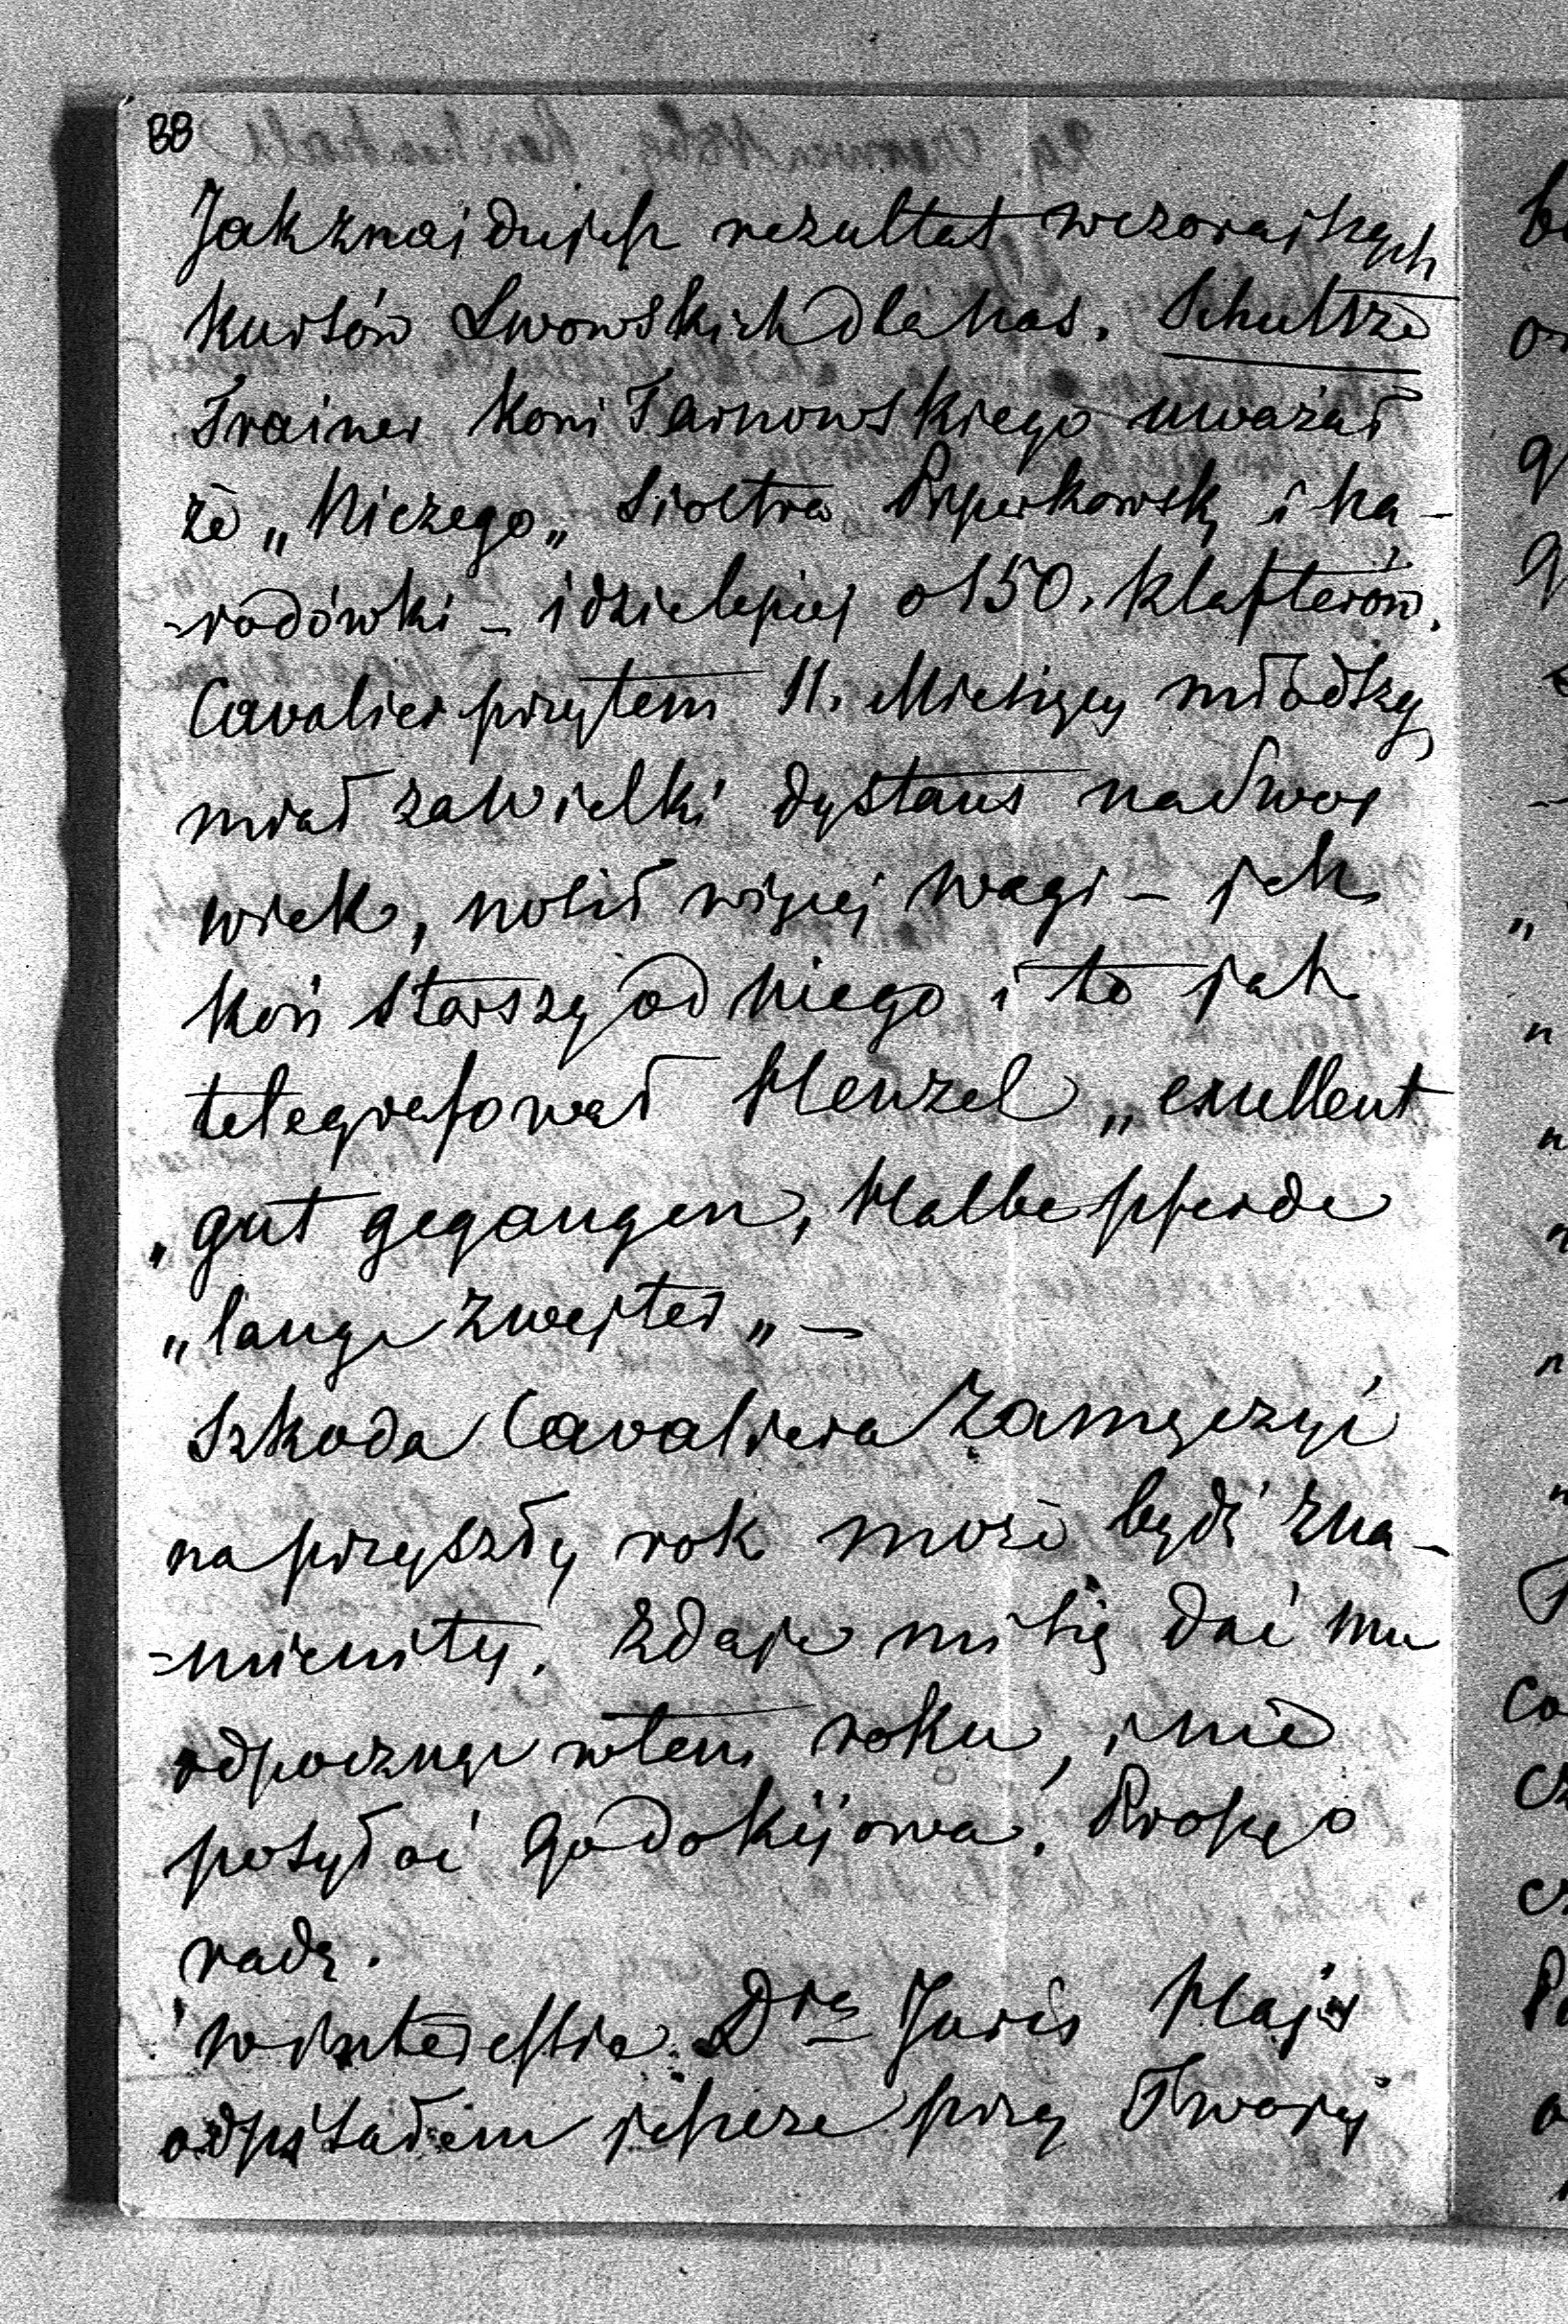 88
Jak znajdujesz rezultat wczorajszych
kursów Lwowskich dla nas. Schultze
Trainer koni Tarnowskiego uważał
że „Niczego„ siostra Piperkowski i ka-
-rodówki – idzie lepiej o 150. klafterów.
Cavalier przytem 11. Miesięcy młodszy
miał za wielki dystans na swój
wiek, nosił więcej wagi – jak
koń starszy od niego i to jak
telegrafował Henzel „exellent
„gut gegangen, Halbe pferde
„lange zweiter„ –
Szkoda Cavaliera zamęczyć
na przyszły rok może będź zna-
-mienity. Zdaje mi się dać mu
odpocząć w tem roku, i nie
posyłać go do Kijowa. Proszę o
radę.
w interessie Dra Juris Haja
odpisałem jeszcze przy Twojej